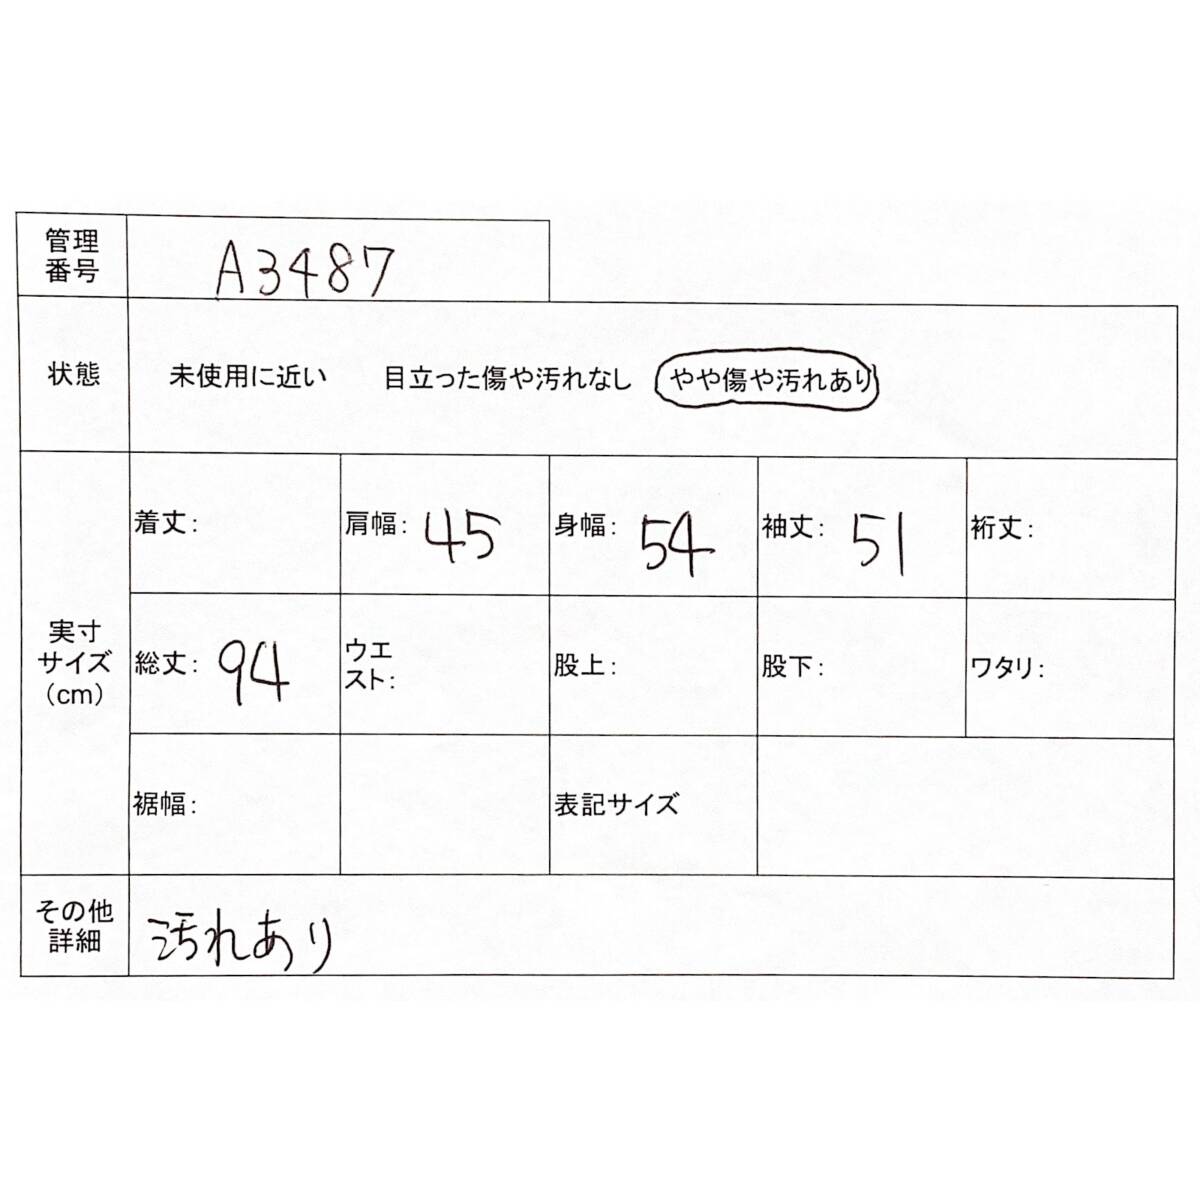 管理
番号
A3487
状態
未使用に近い 目立った傷や汚れなし やや傷や汚れあり
実寸
サイズ
(cm)
着丈:
肩幅: 45
身幅: 54
袖丈: 51
裄丈:
総丈: 94
ウエ
スト:
股上:
股下:
ワタリ:
裾幅:
表記サイズ
その他
詳細
汚れあり